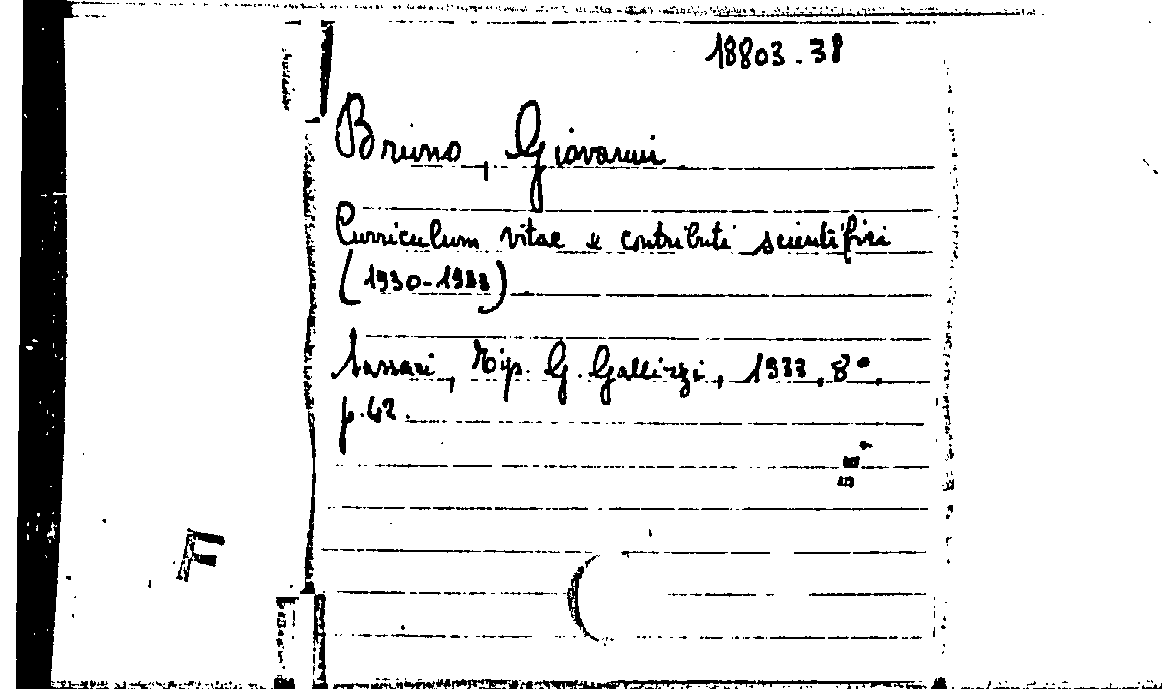 18803.38
Bruno, Giovanni
Curriculum vitae e contributi scientifici
(1930-1933)
Sassari, Tip. G. Gallizzi, 1933, 8°,
p. 42.
F